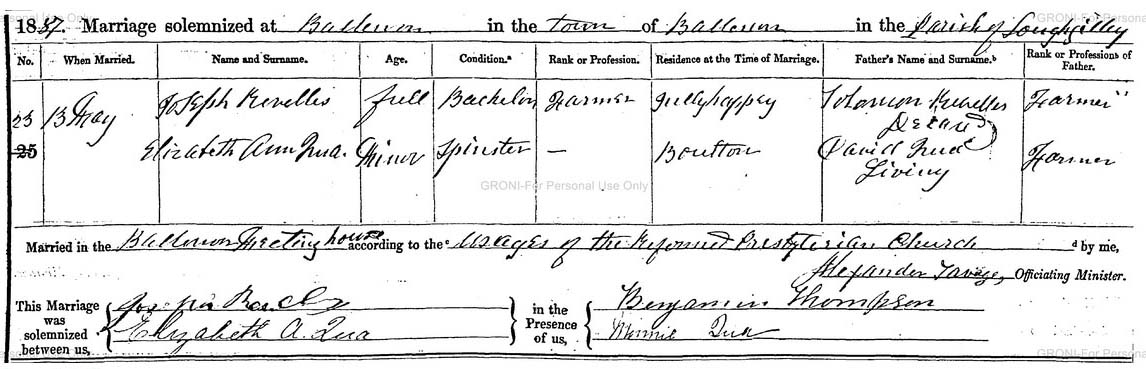 1857. Marriage solemnized at Ballenon in the town of Ballenon in the Parish of Loughgilley
No. When Married. Name and Surname. Age. Condition.ᵃ Rank or Profession. Residence at the Time of Marriage. Father's Name and Surname.ᵇ Rank or Professionᵇ of Father.
23 13 May Joseph full Bachelor Farmer Solomon Farmer
Decasd
25 Elizabeth Ann Qua. Minor Spinster — David Qua Farmer
Living
GRONI-For Personal Use Only
Married in the Ballenon Meeting house according to theᶜ Usages of the Reformed Presbyterian Church ᵈ by me,
Alexander Savage, Officiating Minister.
This Marriage was solemnized between us, Joseph in the Presence of us, Benjamin Thompson
Elizabeth A. Qua Minnie Qua
GRONI-For Persona